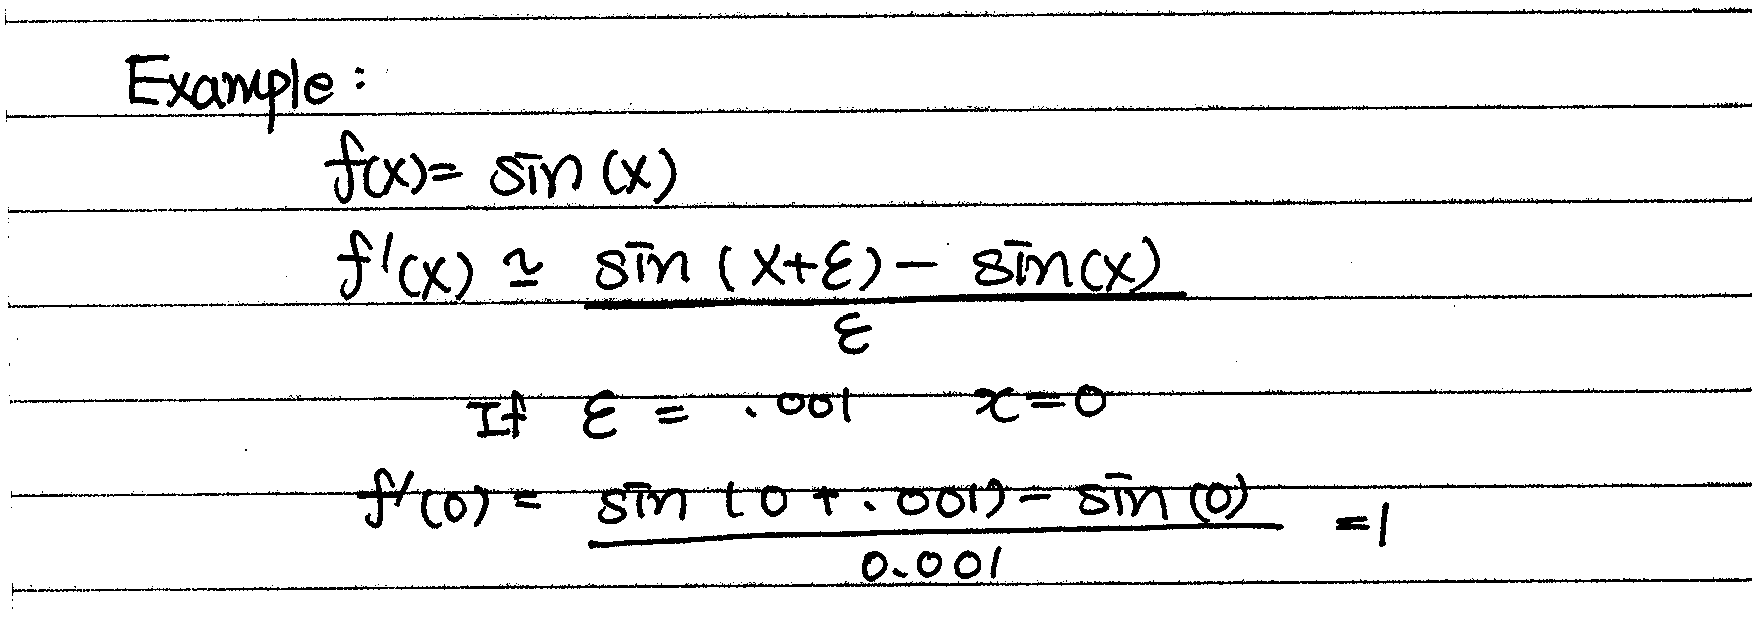 Example:
f(x) = sin (x)
f'(x) ≃ sin (x+ε) - sin(x)
ε
If ε = .001 x=0
f'(0) = sin (0 + .001) - sin (0) =1
0.001